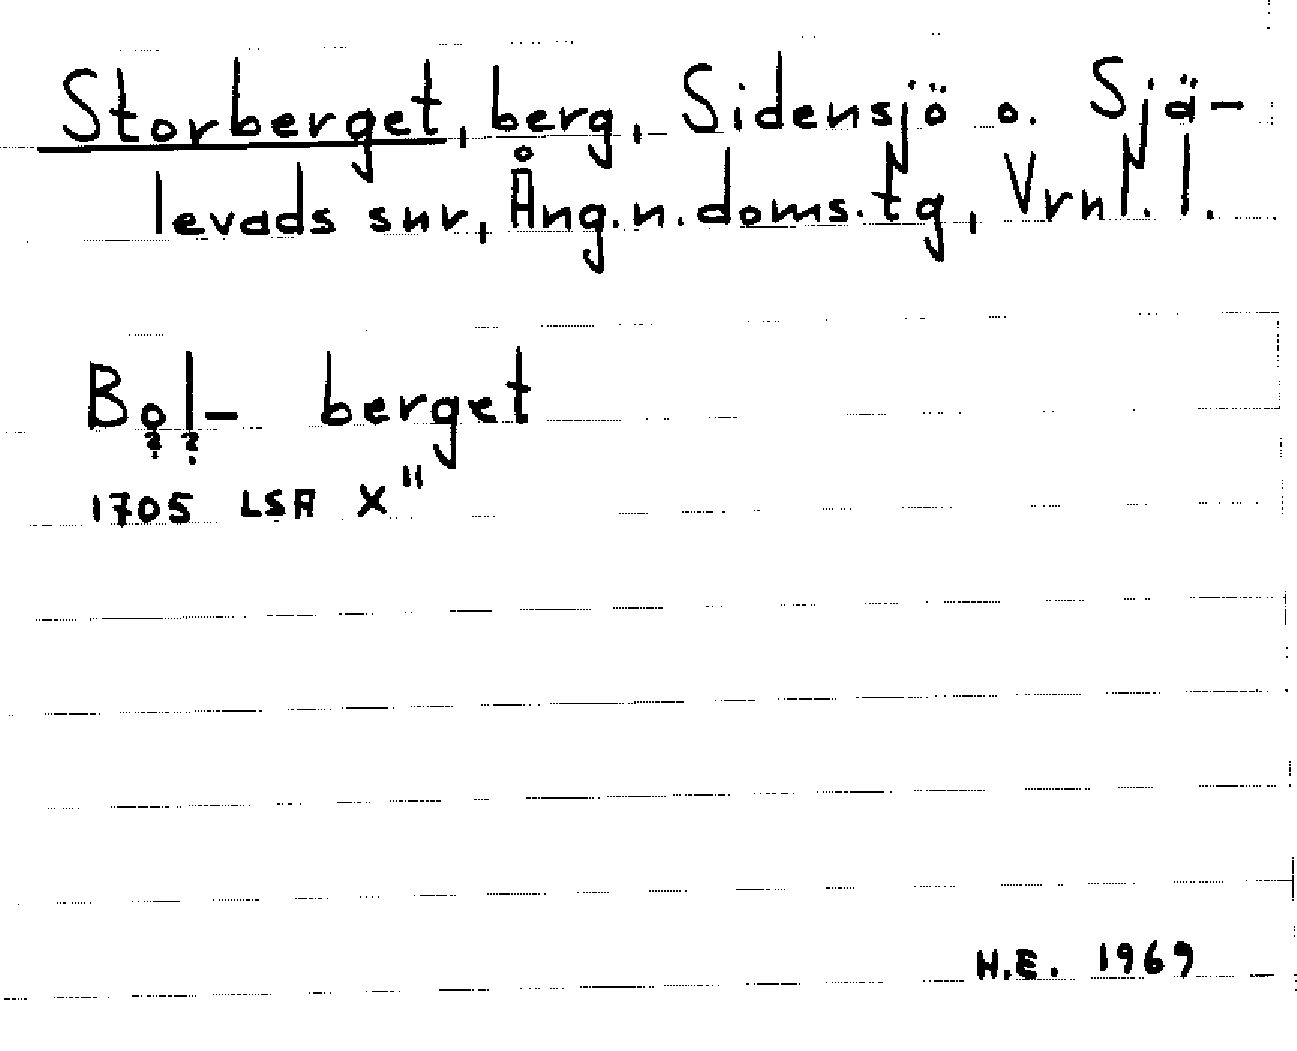 Storberget, berg, Sidensjö o. Sjä-
levads snr, Ång.n.doms.tg, Vrnl. l.
Bol- berget
? ?
1705 LSA X"
H.E. 1969